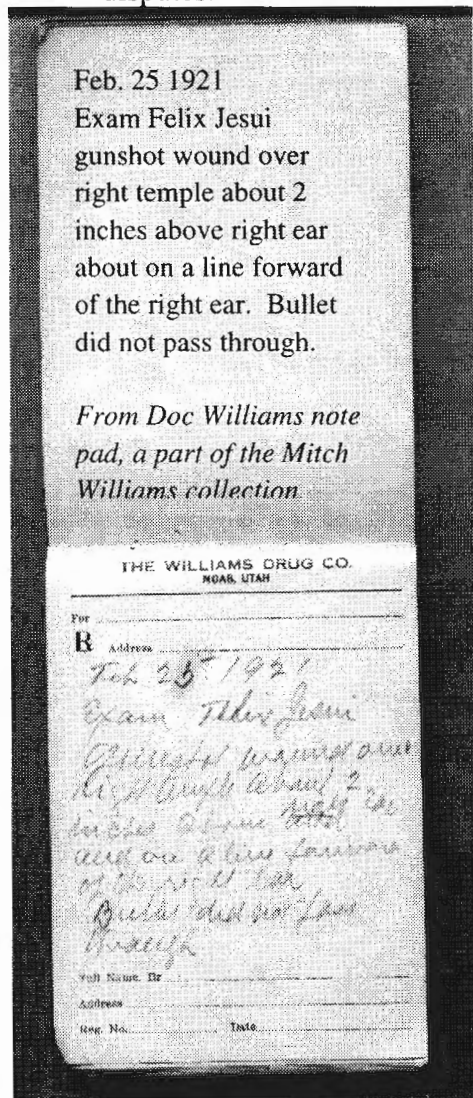 Feb. 25 1921
Exam Felix Jesui
gunshot wound over
right temple about 2
inches above right ear
about on a line forward
of the right ear. Bullet
did not pass through.
From Doc Williams note
pad, a part of the Mitch
Williams collection
THE WILLIAMS DRUG CO.
MOAB, UTAH
For
R Address
Feb 25 1921
Exam Felix Jesui
Gunshot wound over
right temple about 2
inches above right ear
and on a line forward
of the right ear
Bullet did not pass
through
Full Name Dr
Address
Reg. No. Date